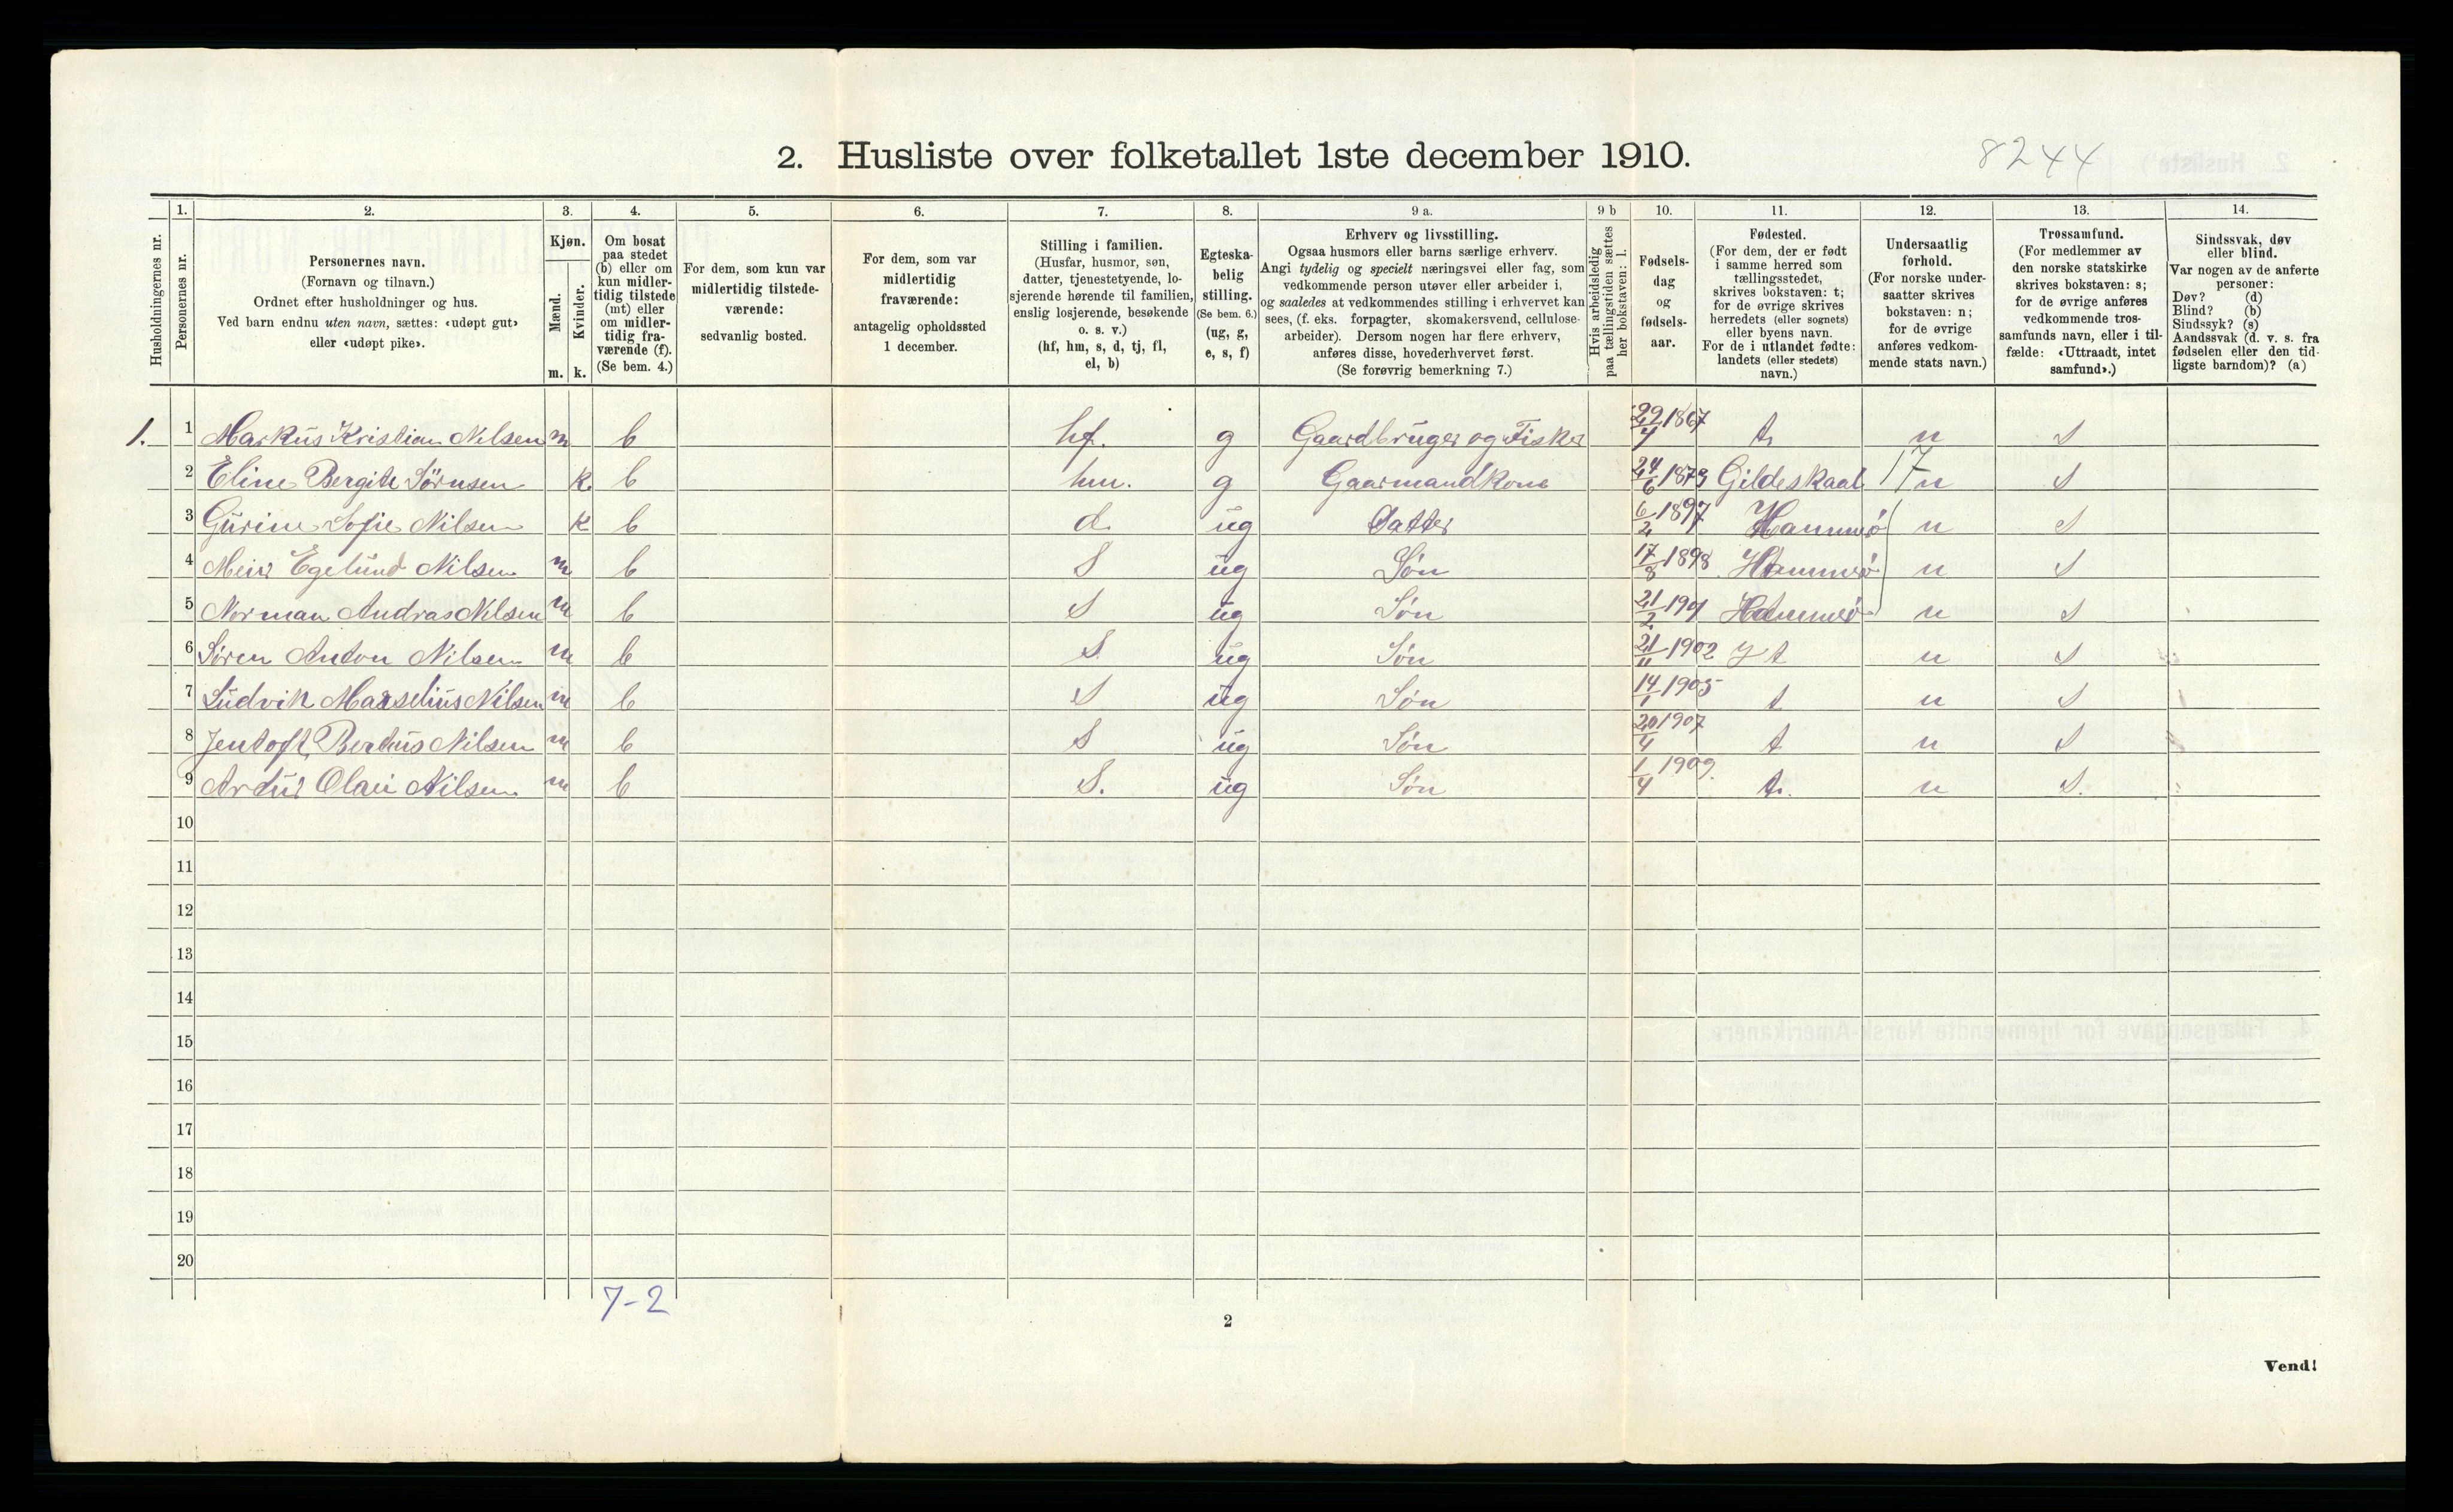 2. Husliste over folketallet 1ste december 1910.
8244
Husholdningernes nr.
1.
Personernes nr.
2.
Personernes navn.
(Fornavn og tilnavn.)
Ordnet efter husholdninger og hus.
Ved barn endnu uten navn, sættes: «udøpt gut»
eller «udøpt pike».
3.
Kjøn.
Mænd.
Kvinder.
m. k.
4.
Om bosat
paa stedet
(b) eller om
kun midler-
tidig tilstede
(mt) eller
om midler-
tidig fra-
værende (f).
(Se bem. 4.)
5.
For dem, som kun var
midlertidig tilstede-
værende:
sedvanlig bosted.
6.
For dem, som var
midlertidig
fraværende:
antagelig opholdssted
1 december.
7.
Stilling i familien.
(Husfar, husmor, søn,
datter, tjenestetyende, lo-
sjerende hørende til familien,
enslig losjerende, besøkende
o. s. v.)
(hf, hm, s, d, tj, fl,
el, b)
8.
Egteska-
belig
stilling.
(Se bem. 6.)
(ug, g,
e, s, f)
9 a.
Erhverv og livsstilling.
Ogsaa husmors eller barns særlige erhverv.
Angi tydelig og specielt næringsvei eller fag, som
vedkommende person utøver eller arbeider i,
og saaledes at vedkommendes stilling i erhvervet kan
sees, (f. eks. forpagter, skomakersvend, cellulose-
arbeider). Dersom nogen har flere erhverv,
anføres disse, hovederhvervet først.
(Se forøvrig bemerkning 7.)
9 b
Hvis arbeidsledig
paa tællingstiden sættes
her bokstaven: l.
10.
Fødsels-
dag
og
fødsels-
aar.
11.
Fødested.
(For dem, der er født
i samme herred som
tællingsstedet,
skrives bokstaven: t;
for de øvrige skrives
herredets (eller sognets)
eller byens navn.
For de i utlandet fødte:
landets (eller stedets)
navn.)
12.
Undersaatlig
forhold.
(For norske under-
saatter skrives
bokstaven: n;
for de øvrige
anføres vedkom-
mende stats navn.)
13.
Trossamfund.
(For medlemmer av
den norske statskirke
skrives bokstaven: s;
for de øvrige anføres
vedkommende tros-
samfunds navn, eller i til-
fælde: «Uttraadt, intet
samfund».)
14.
Sindssvak, døv
eller blind.
Var nogen av de anførte
personer:
Døv? (d)
Blind? (b)
Sindssyk? (s)
Aandssvak (d. v. s. fra
fødselen eller den tid-
ligste barndom)? (a)
1. 1 Markus Kristian Nilsen m b hf. g Gaardbruger og Fisker 22/4 1867 t. n S
2 Eline Bergite Sørnsen k b hm. g Gaarmandkone 24/6 1873 Gildeskaal 17 n S
3 Gurine Sofie Nilsen k b d. ug Datter 6/2 1897 Hammerø n S
4 Meier Egelund Nilsen m b S ug Søn 17/8 1898 Hammerø n S
5 Norman Andras Nilsen m b S ug Søn 21/2 1901 Hammerø n S
6 Søren Anton Nilsen m b S. ug Søn 21/11 1902 t n S
7 Ludvik Marselius Nilsen m b S ug Søn 14/1 1905 t n S
8 Jentoft Bertius Nilsen m b S ug Søn 20/4 1907 t n S
9 Artur Olai Nilsen m b S. ug Søn 1/4 1909. t. n S.
10
11
12
13
14
15
16
17
18
19
20
7-2
2
Vend!